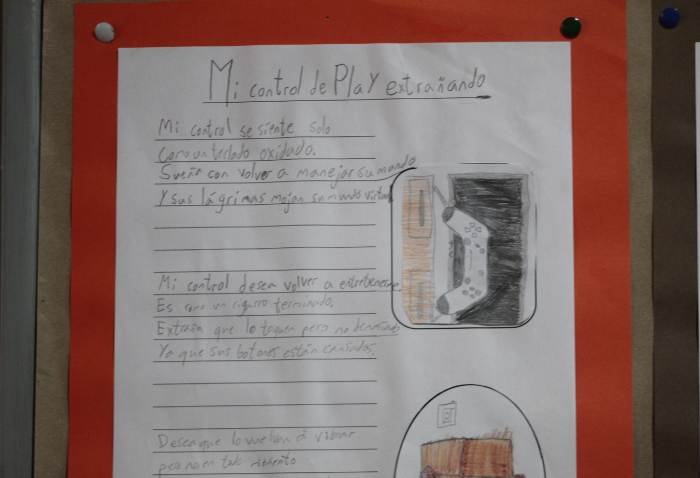 Mi control de Play extrañando
Mi control se siente solo
Como un teclado oxidado.
Sueña con volver a manejar su mando
Y sus lágrimas mojan su mundo virtual
Mi control desea volver a entretenerme.
Es como un cigarro terminado.
Extraña que lo toquen pero no demasiado
Ya que sus botones están cansados.
Desea que lo vuelvan a vibrar
pero no en todo momento